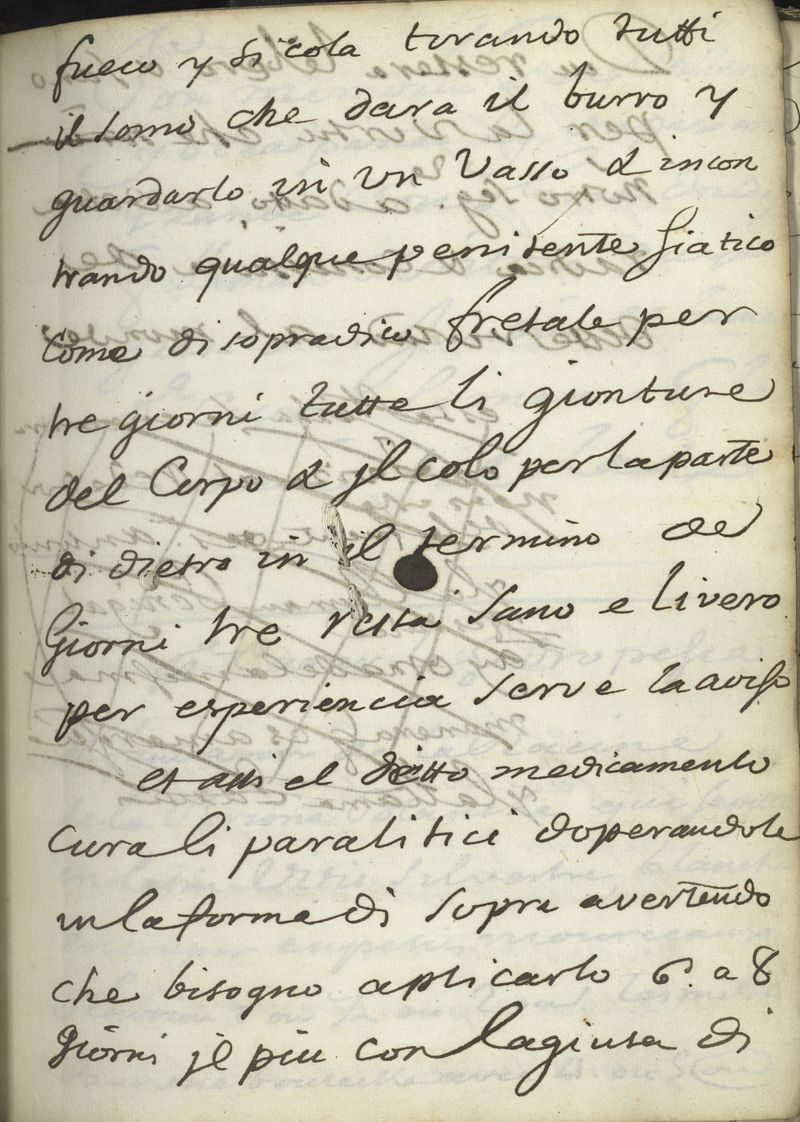 fueco y si cola torando tutti
il somo che dara il burro y
guardarlo in un Vasso & incon
trando qualque penitente siatico
Come di sopra dico fretale per
tre giorni tutte li gionture
del Corpo & jl colo per la parte
di dietro in il termino de
Giorni tre resta sano e livero
per esperiencia serve la aviso
et assi el ditto medicamento
cura li paralitici doperandole
in la forma di sopra avertendo
che bisogno aplicarlo 6. a 8
Giorni jl piu con la giuta di